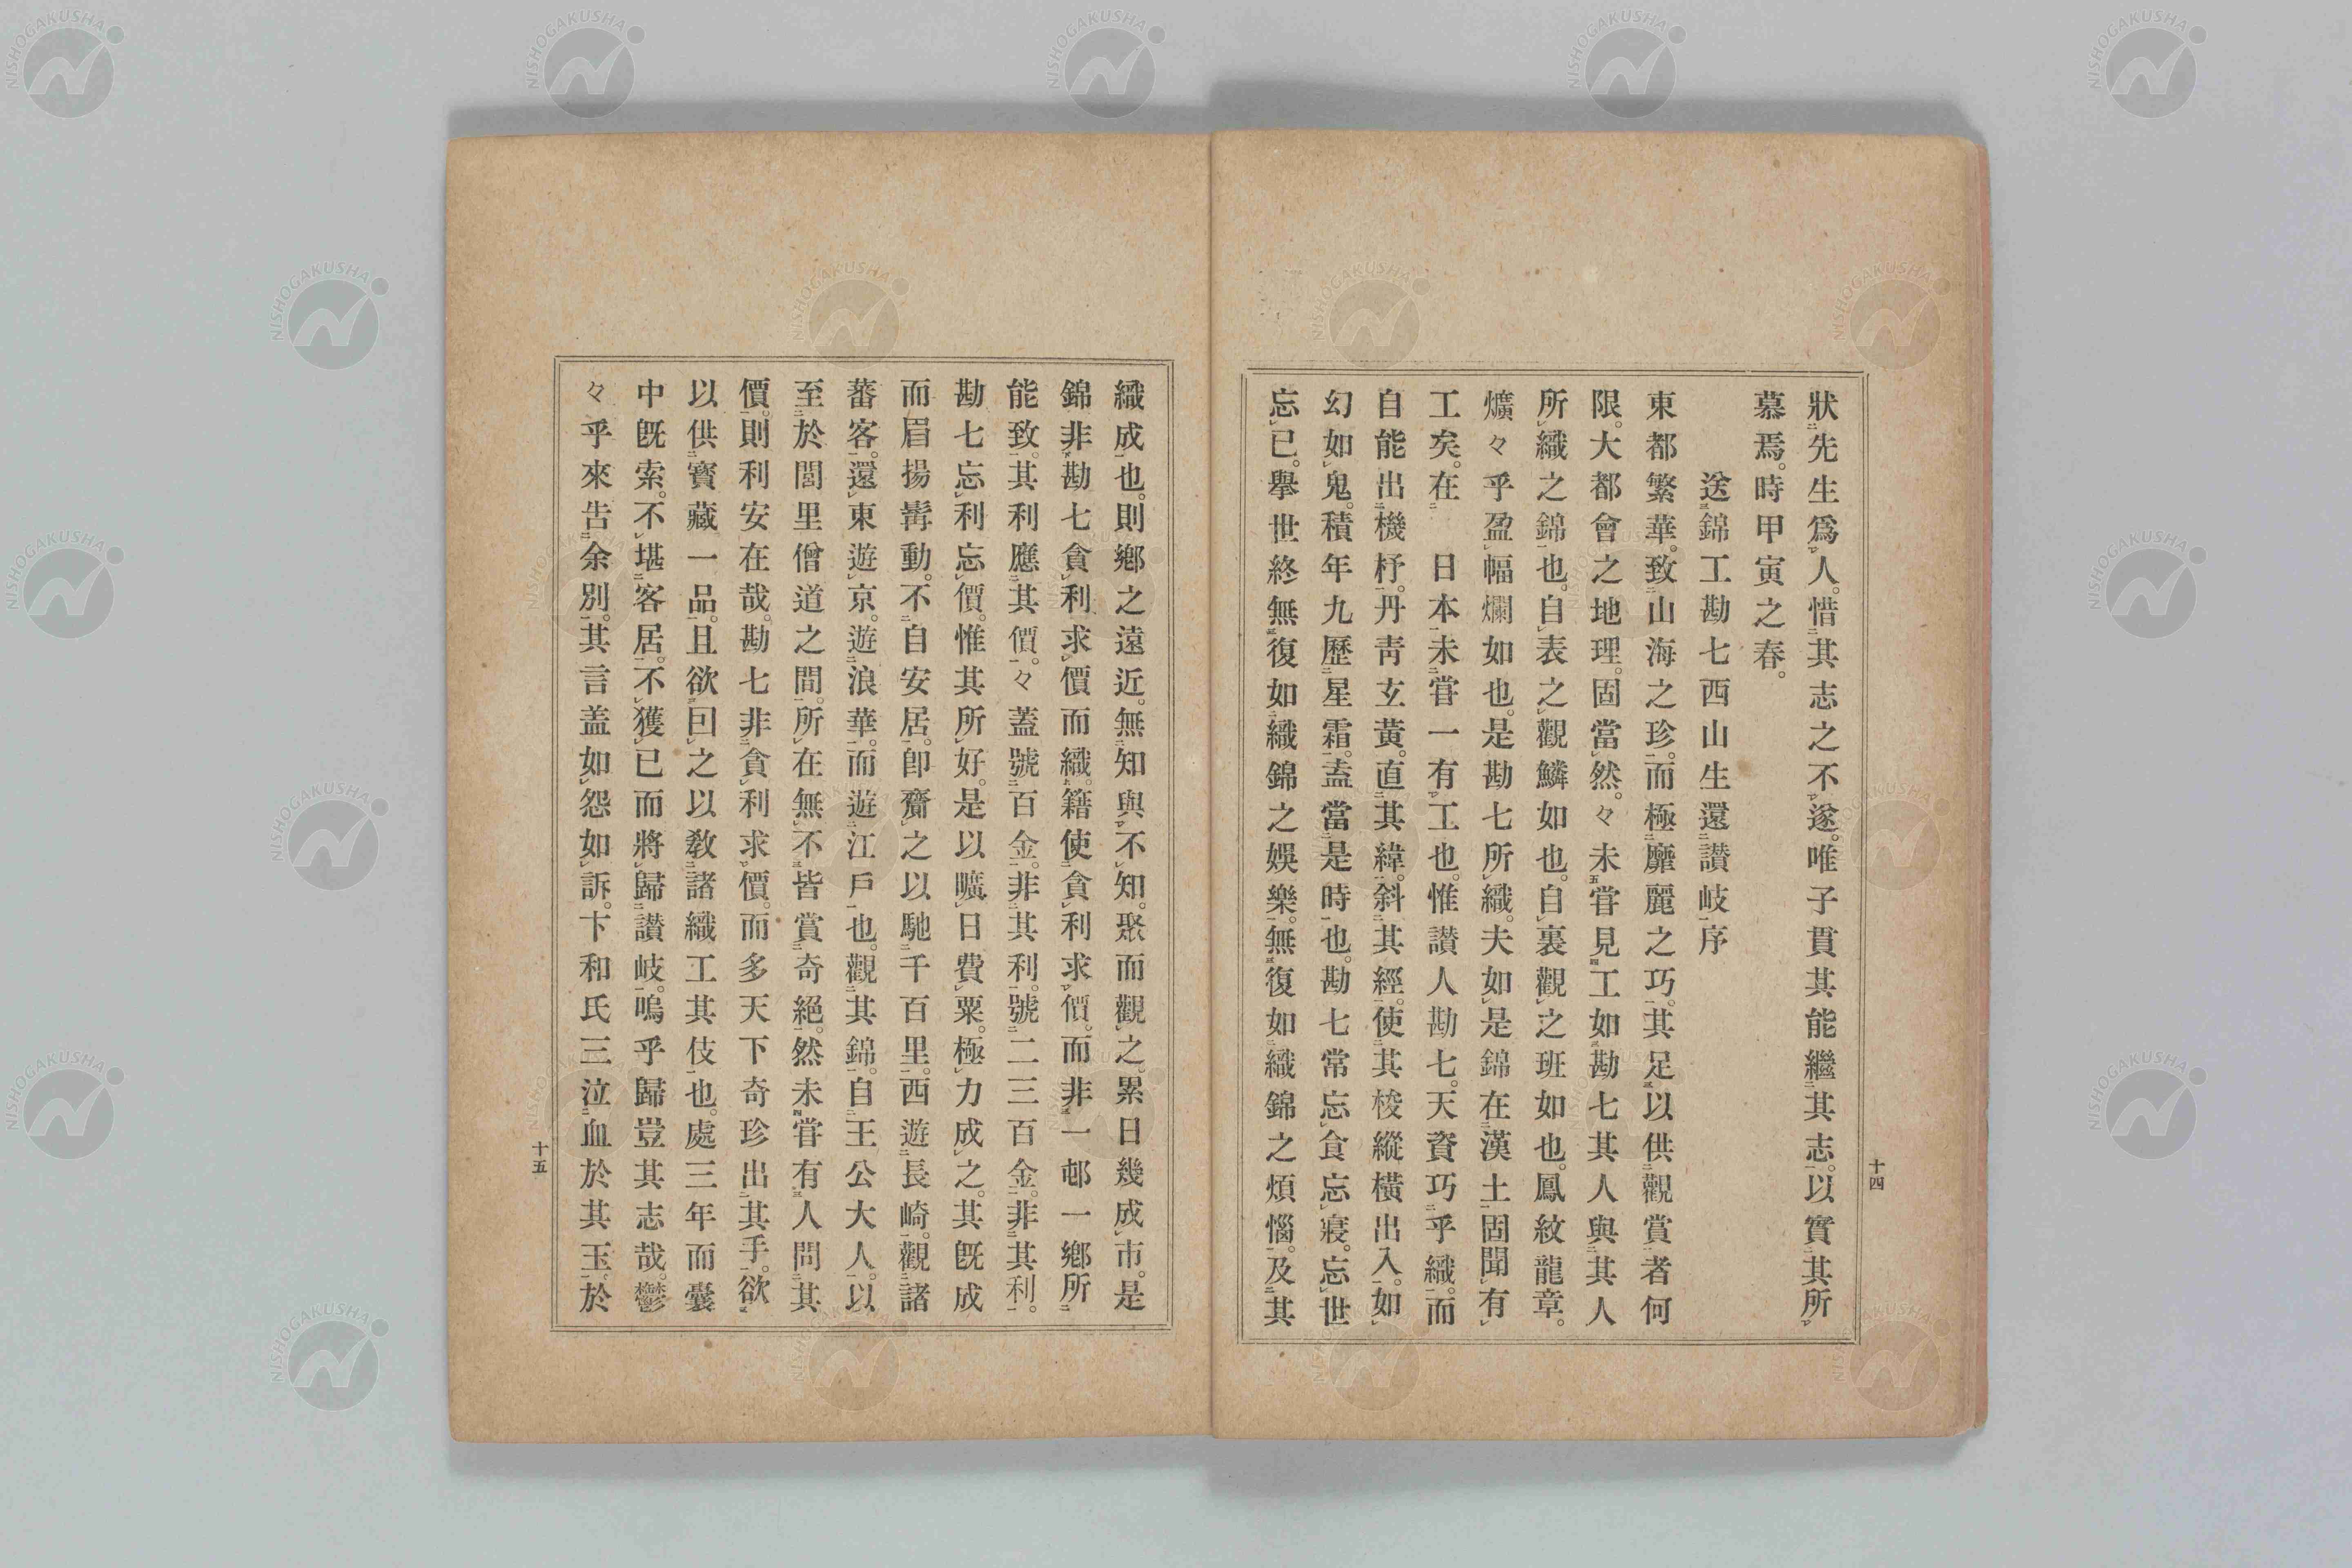 狀先生爲人。惜其志之不遂。唯子貫其能繼其志。以實其所
慕焉。時甲寅之春。
送錦工勘七西山生還讃岐序
東都繁華。致山海之珍。而極靡麗之巧。其足以供觀賞者何
限。大都會之地理。固當然。々未嘗見工如勘七其人與其人
所織之錦也。自表之觀鱗如也。自裏觀之班如也。鳳紋龍章。
爌々乎盈幅爛如也。是勘七所織。夫如是錦在漢土固聞有
工矣。在　日本未嘗一有工也。惟讃人勘七。天資巧乎織。而
自能出機杼。丹靑玄黃。直其緯。斜其經。使其梭縱橫出入。如
幻如鬼。積年九歷星霜。盖當是時也。勘七常忘食忘寢。忘世
忘已。擧世終無復如織錦之娛樂。無復如織錦之煩惱。及其
十四
織成也。則鄕之遠近。無知與不知。聚而觀之。累日幾成市。是
錦非勘七貪利求價而織。籍使貪利求價。而非一邨一鄕所
能致。其利應其價。々蓋號百金。非其利。號二三百金。非其利。
勘七忘利忘價。惟其所好。是以曠日費粟。極力成之。其旣成
而眉揚髯動。不自安居。卽齎之以馳千百里。西遊長崎。觀諸
蕃客。還東遊京。遊浪華。而遊江戶也。觀其錦。自王公大人。以
至於閭里僧道之間。所在無不皆賞奇絕。然未嘗有人問其
價。則利安在哉。勘七非貪利求價。而多天下奇珍出其手。欲
以供寶藏一品。且欲回之以敎諸織工其伎也。處三年而囊
中旣索。不堪客居。不獲已而將歸讃岐。嗚乎歸豈其志哉。鬱
々乎來告余別。其言盖如怨如訴。卞和氏三泣血於其玉於
十五
NISHOGAKUSHA